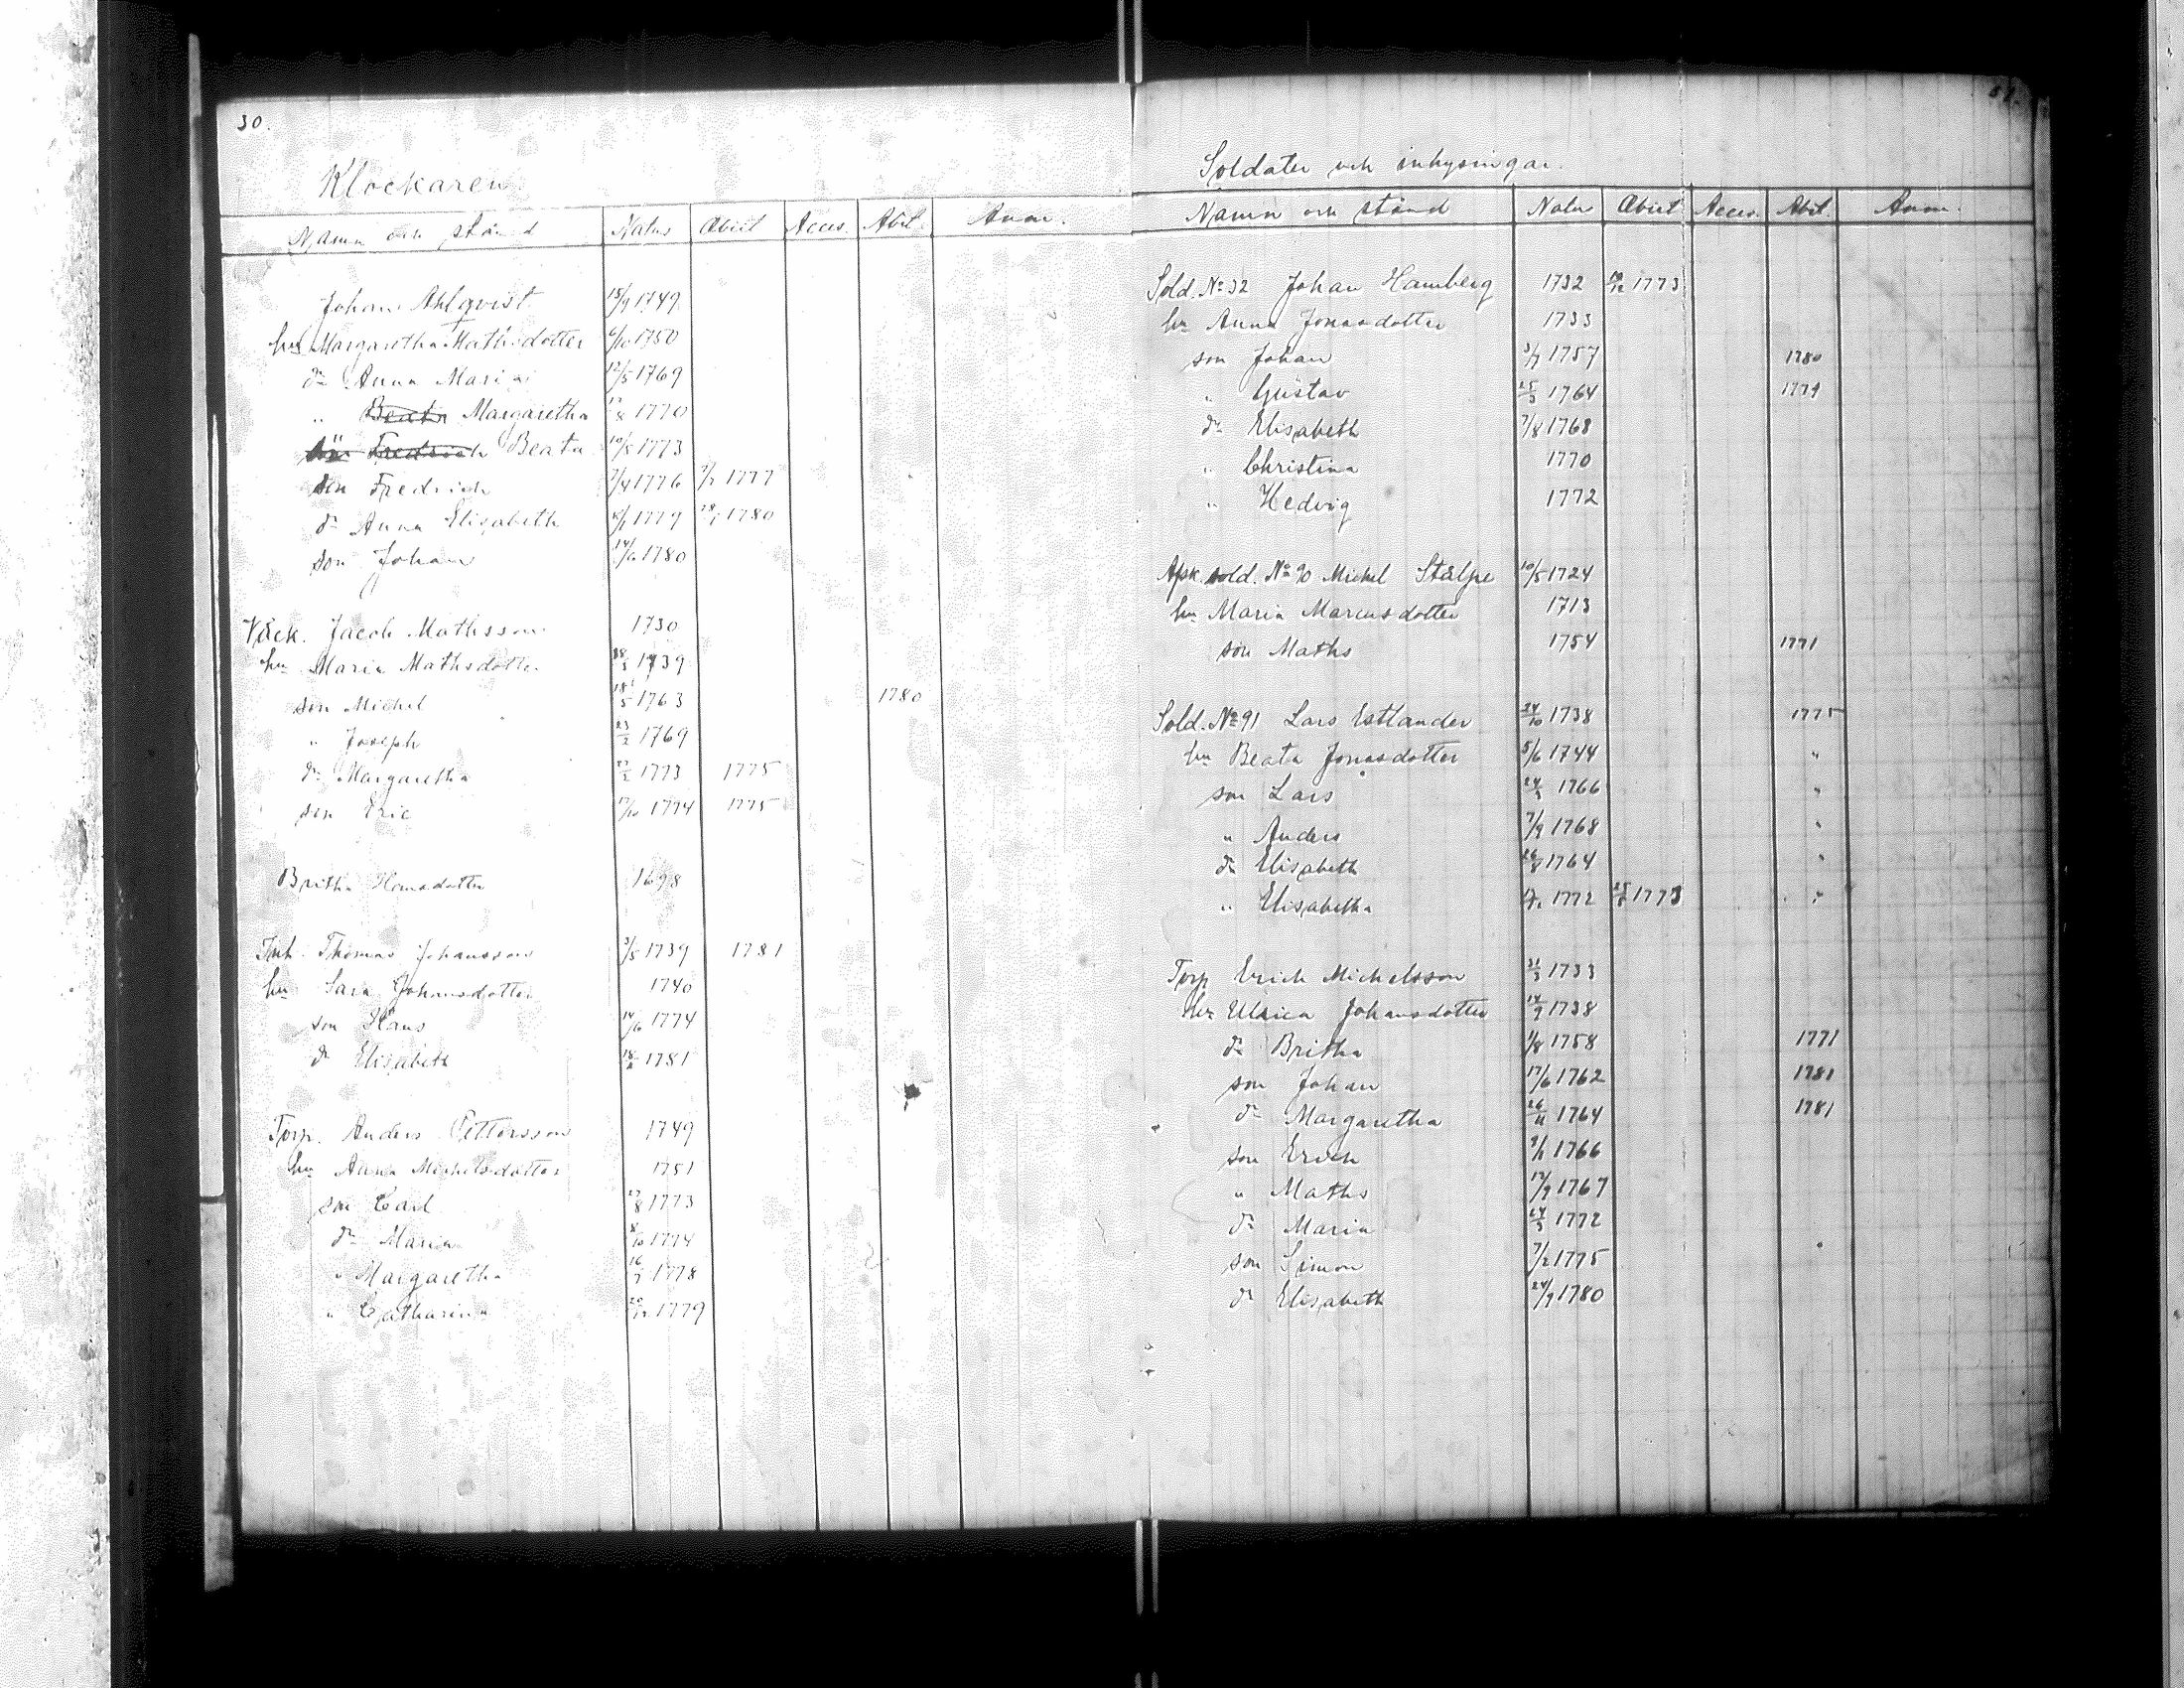 30.
Klockaren.
Namn och stånd Natus Obiit Acces. Abit. Anm.
Johan Ahlqvist 15/9 1749
hu Margaretha Mathsdotter 6/10 1750
dr Anna Maria 12/5 1769
" Beata Margaretha 1770
son Fredrich Beata 10/5 1773
son Fredrich 7/4 1776 1777
dr Anna Elisabeth 1779 1780
son Johan 14/6 1780
Väck. Jacob Mathsson 1730
hu Maria Mathsdotter 1739
son Michel 18/5 1763 1780
" Joseph 23/2 1769
dr Margaretha 1773 1775
son Eric 17/10 1774 1775
Britha 1698
Inh. Thomas Johansson 3/5 1739 1781
hu Sara Johansdotter 1740
son Hans 14/6 1774
dr Elisabeth 1781
Torp. Anders Pettersson 1749
hu Anna Michelsdotter 1751
son Carl 27/8 1773
dr Maria 8/10 1774
" Margaretha 1778
" Catharina 20/12 1779
31.
Soldater och inhysingar.
Namn och stånd Natus Obiit Acces. Abit. Anm.
Sold. No 32 Johan Hamberg 1732 1773
hu Anna Jonasdotter 1733
son Johan 3/7 1757 1780
" Gustav 25/3 1764 1779
dr Elisabeth 7/8 1768
" Christina 1770
" Hedvig 1772
Afsk. sold. No 90 Michel Stålpe 10/5 1724
hu Maria Marcusdotter 1713
son Maths 1754 1771
Sold. No 91 Lars Estlander 24/10 1738 1775
hu Beata Jonasdotter 5/6 1744 "
son Lars 1766 "
" Anders 7/9 1768 "
dr Elisabeth 1764 "
" Elisabetha 1772 1773 "
Torp Erich Michelsson 31/3 1733
hu Ulrica Johansdotter 14/9 1738
dr Britha 1/8 1758 1771
son Johan 17/6 1762 1781
dr Margaretha 26/11 1764 1781
son Erich 9/1 1766
" Maths 17/9 1767
dr Maria 24/3 1772
son Simon 7/2 1775
dr Elisabeth 24/9 1780